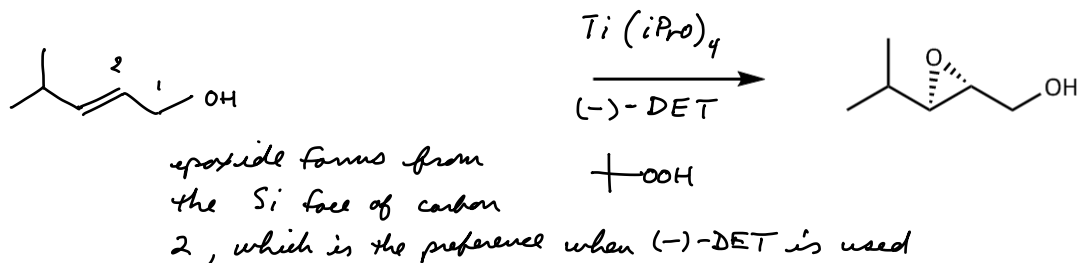 Ti (iPrO)4
2
1
OH
O
OH
(-)-DET
epoxide forms from
OOH
the Si face of carbon
2, which is the preference when (-)-DET is used